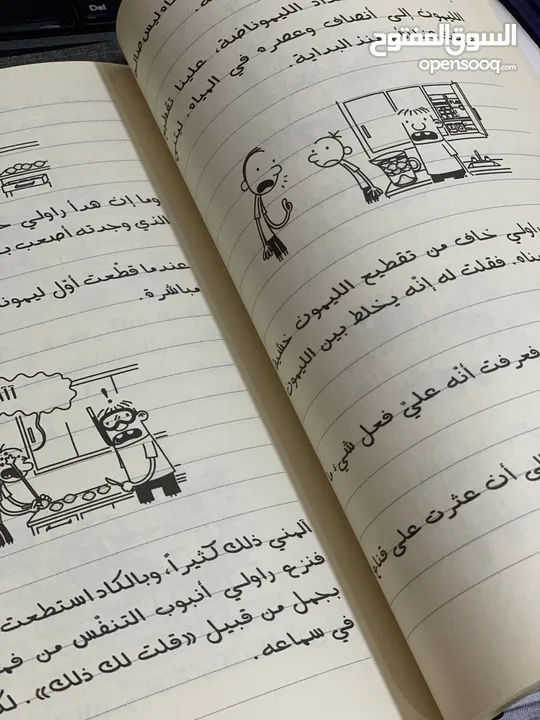 Del
السوق المفتوح
opensooq.com
الليموناضة. علينا تقطيع
الليمون الى أنصاف وعصره في المياه.
منذ البداية.
راولي خاف من تقطيع الليمون خشية
فقلت له إنّه يخلط بين الليمون
فعرفت أنّه عليّ فعل شيء
أن عثرت على قناع
وما إن هدأ راولي
الذي وجدته أصعب
عندما قطّعت أوّل ليمونة
مباشرة.
آلمني ذلك كثيراً، وبالكاد استطعت
فنزع راولي أنبوب التنفّس من فمه
بجمل من قبيل «قلت لك ذلك».
في سماعه.